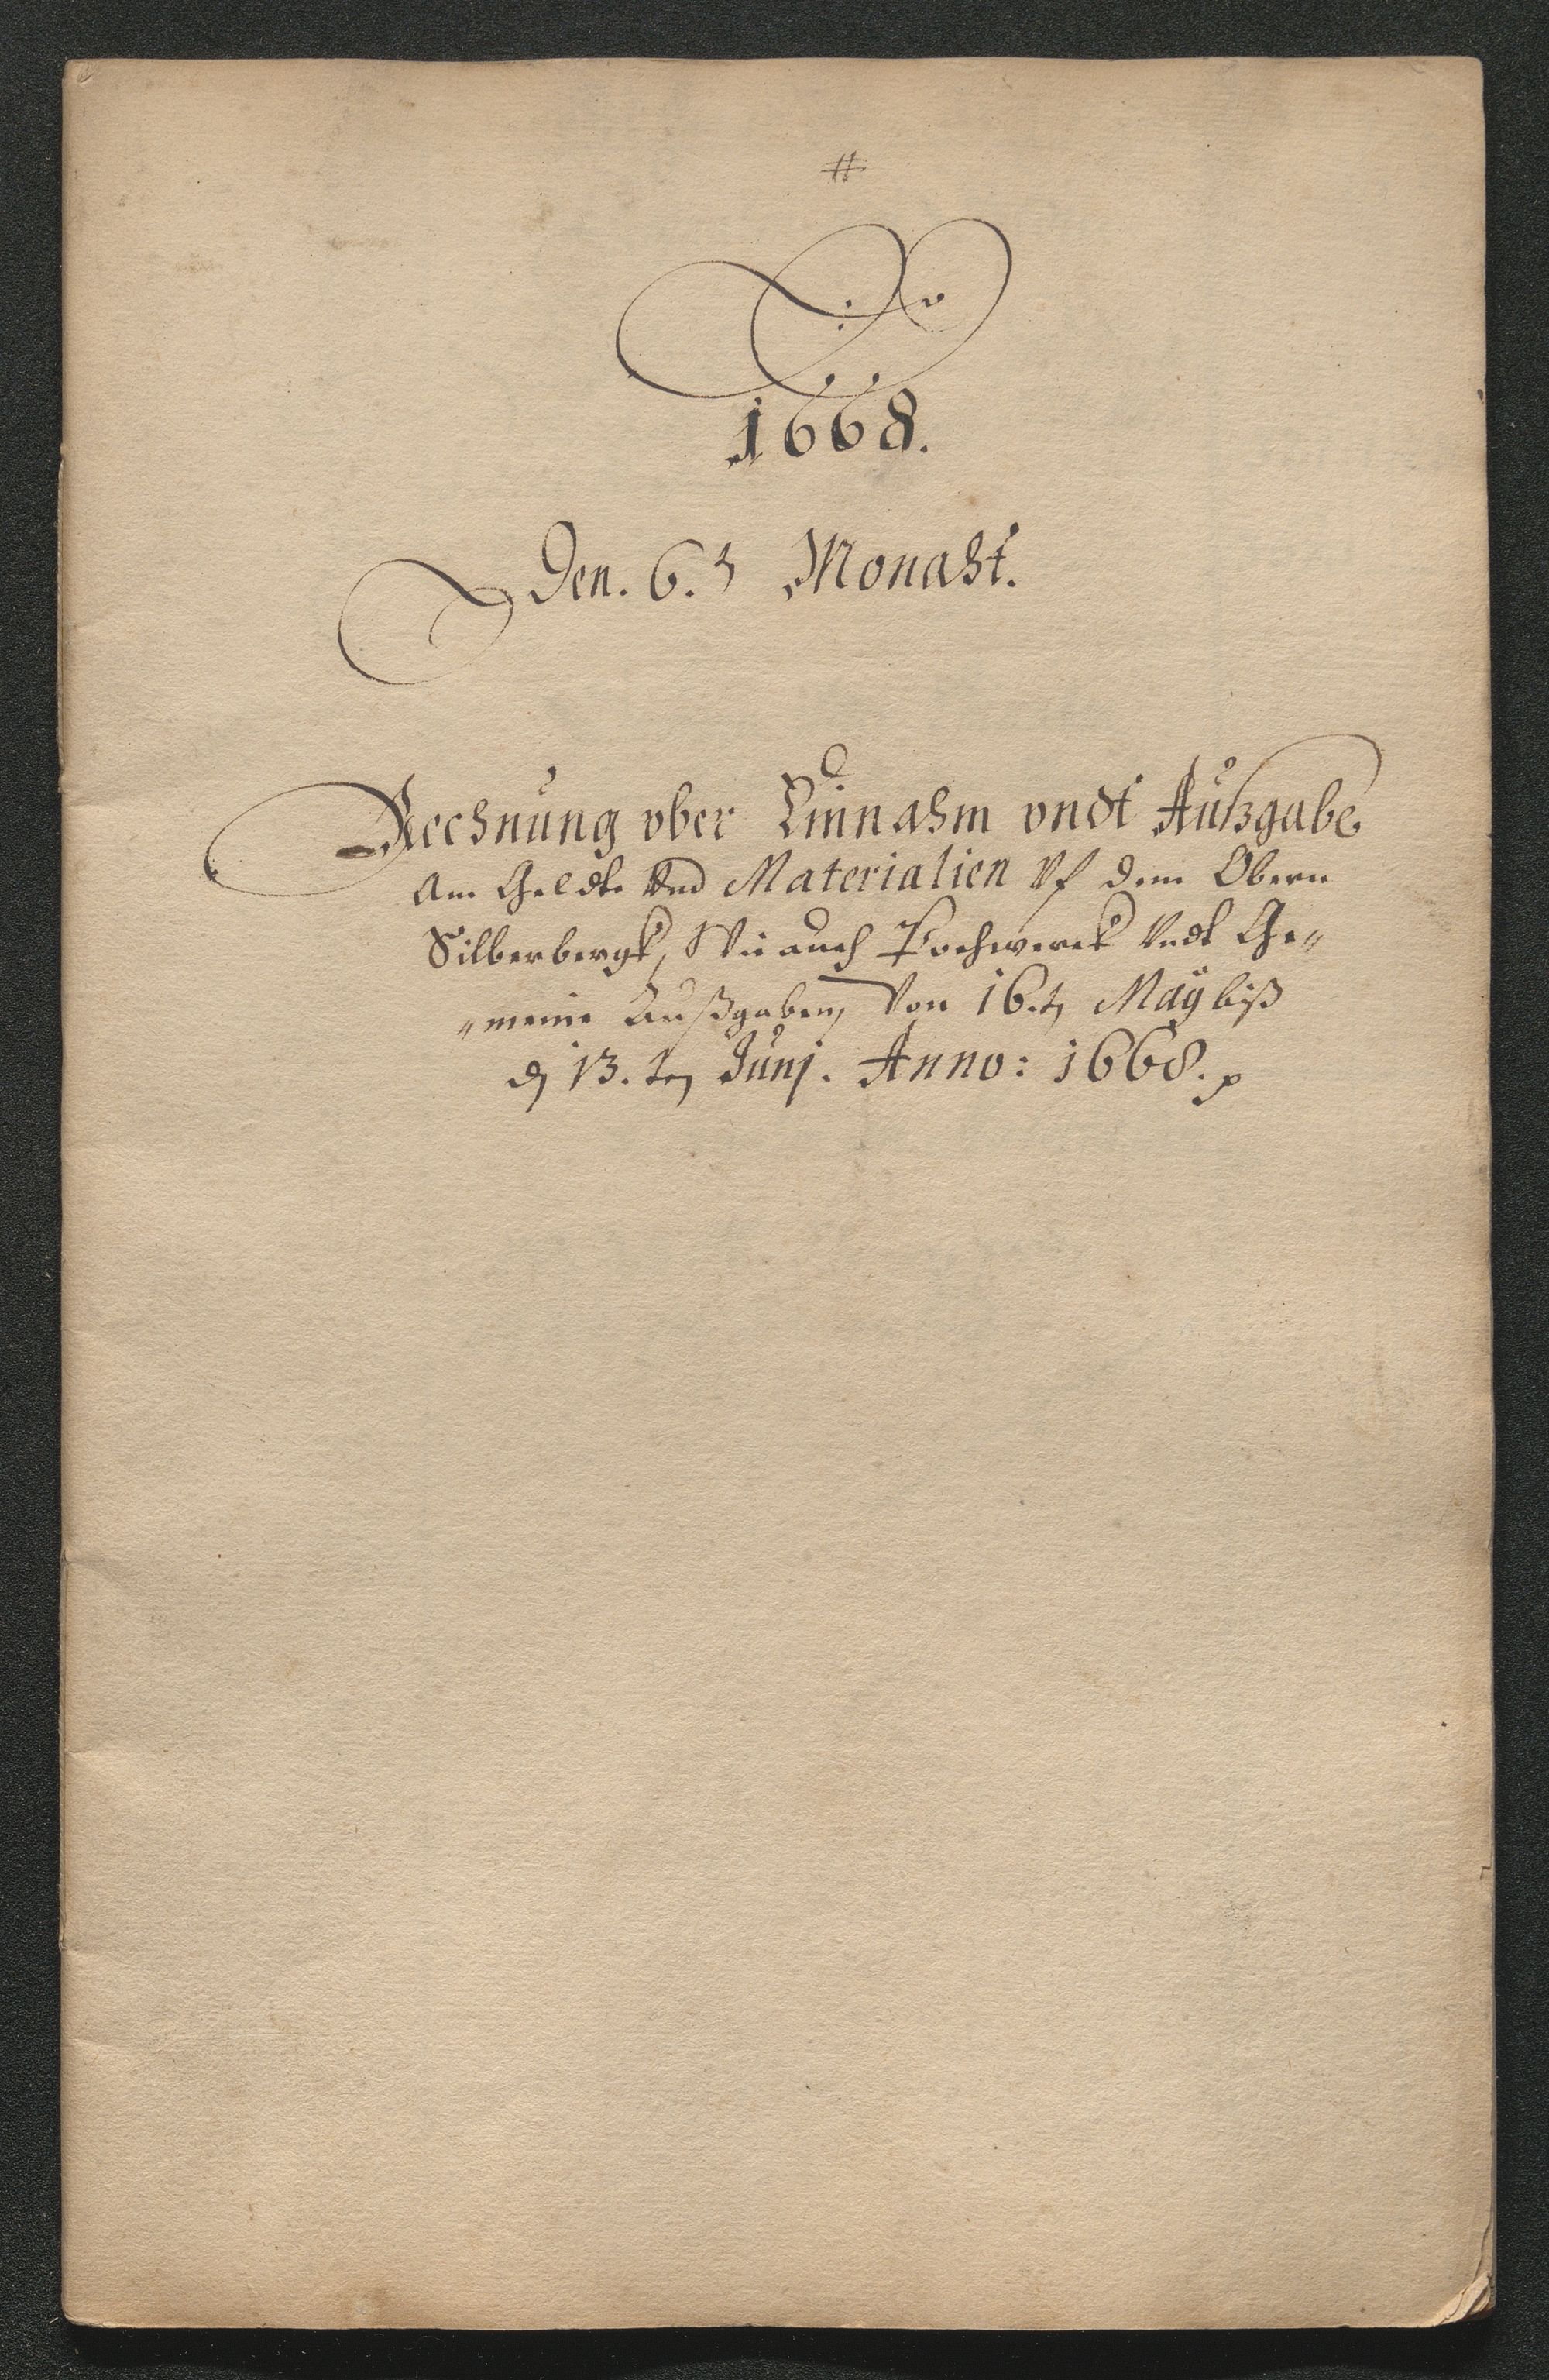 #
1668.
Den. 6.t Monaht.
Rechnung vber Einnahm vndt Außgabe
Am Geldte Vnd Materialien Vf dem Obern
Silberbergk, Wie auch Pochwerck Vndt Ge„
„meine Außgaben, Von 16.t Maÿ biß
d 13.ten Junj. Anno: 1668.